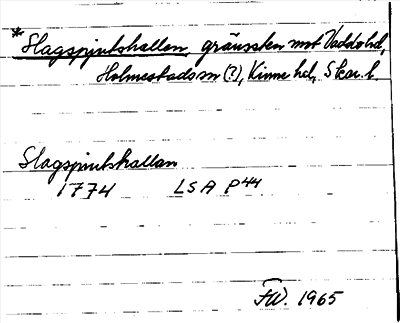 *Slagspjutshallan, gränssten mot Vadsbo hd,
Holmestads sn (?), Kinne hd, Skar. l.
Slagspiutshallan
1774 LSA P44
FW. 1965